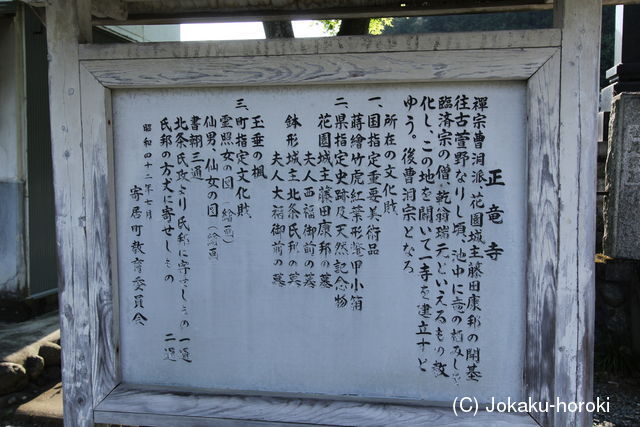 正竜寺
禅宗曹洞派、花園城主藤田康邦の開基
往古萱野なりし頃、池中に竜の栖みしを
臨済宗の僧、乾翁瑞元といえるもの教
化し、この地を開いて一寺を建立すと
ゆう。後曹洞宗となる
所在の文化財
一、国指定重要美術品
蒔絵竹虎紅葉形鼈甲小箱
二、県指定史跡及天然記念物
花園城主藤田康邦の墓
夫人西福御前の墓
鉢形城主北条氏邦の墓
夫人大福御前の墓
玉垂の楓
三、町指定文化財
霊照女の図（絵画）
仙男、仙女の図（絵画）
書翰三通
北条氏政より氏邦に寄せしもの 一通
氏邦の方丈に寄せしもの 二通
昭和四十二年七月
寄居町教育委員会
(C) Jokaku-horoki